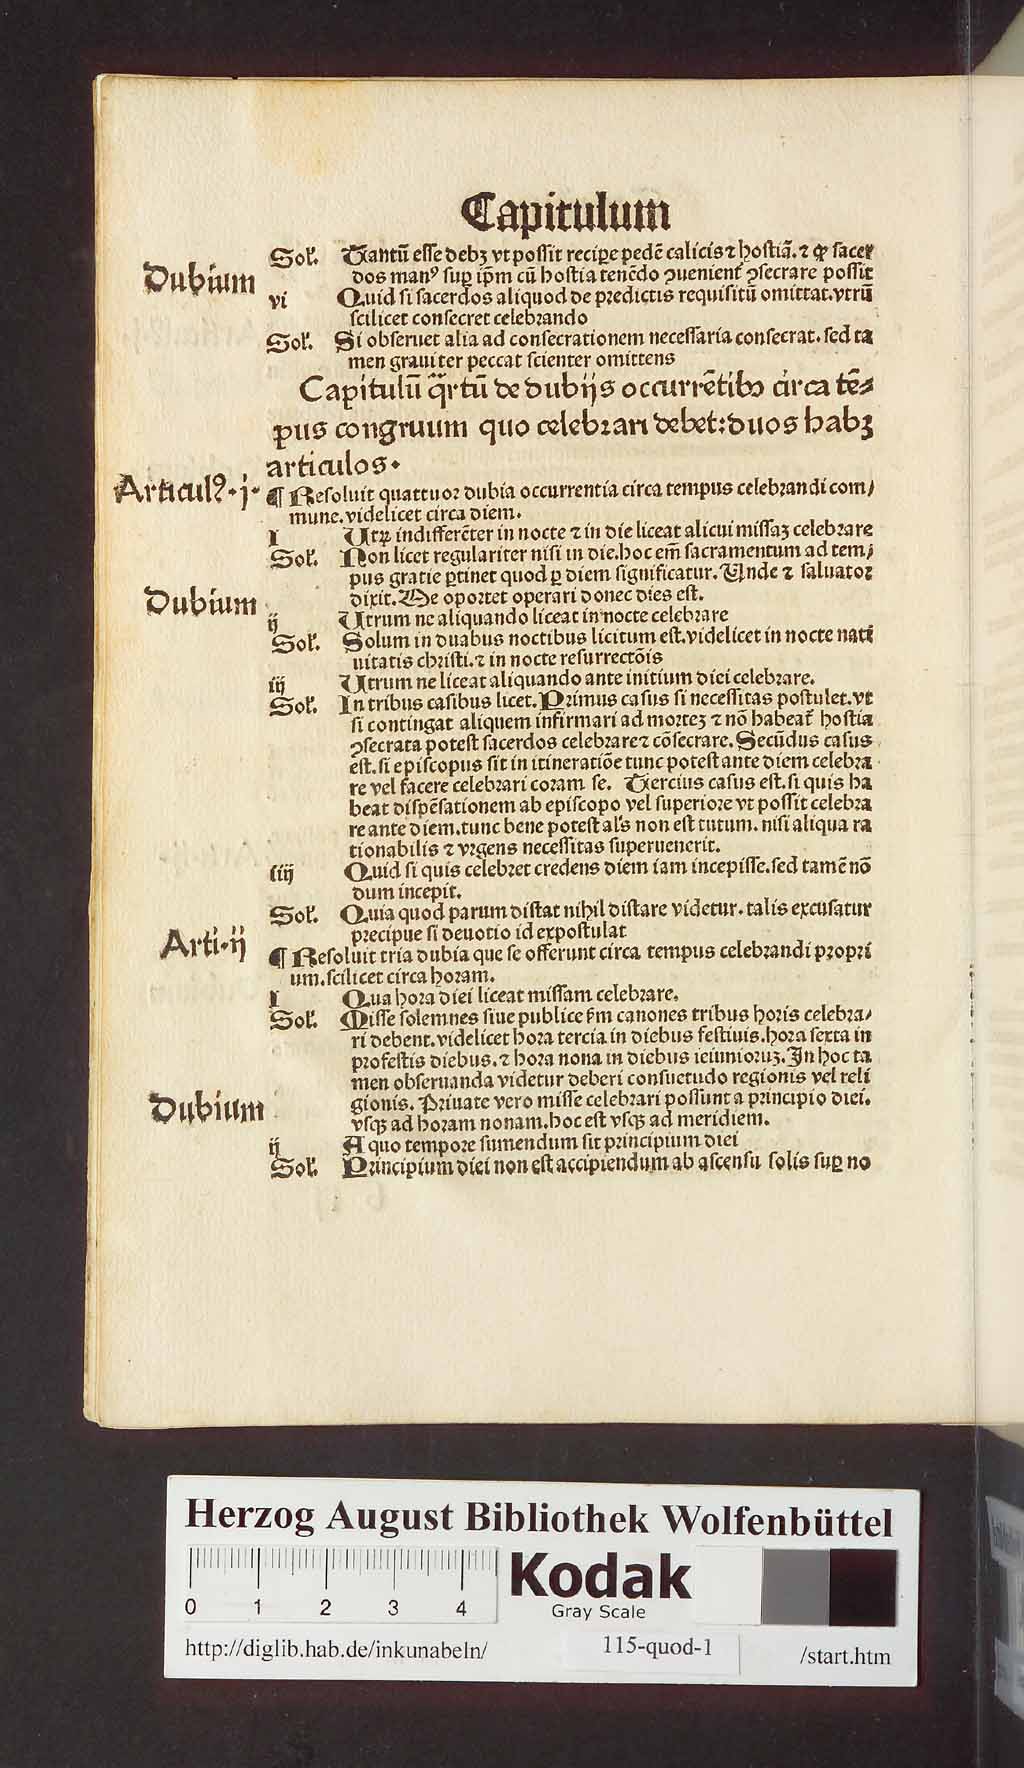 Capitulum
Sol'. Tantū esse debꝫ vt possit recipe pedē calicis ⁊ hostiā. ⁊ ꝙ sacer
Dubium
dos manꝰ suꝑ ip̄m cū hostia tenēdo ꝯuenient᷑ ꝯsecrare possit
vi Quid si sacerdos aliquod de predictis requisitū omittat. vtrū
scilicet consecret celebrando
Sol'. Si obseruet alia ad consecrationem necessaria consecrat. sed ta
men grauiter peccat scienter omittens
Capitulū q̈rtū de dubijs occurrētibꝰ circa tē⸗
pus congruum quo celebrari debet: duos habꝫ
articulos.
Articulꝰ .j.
¶ Resoluit quattuor dubia occurrentia circa tempus celebrandi com/
mune. videlicet circa diem.
I Utꝝ indifferēter in nocte ⁊ in die liceat alicui missaꝫ celebrare
Sol'. Non licet regulariter nisi in die. hoc em̄ sacramentum ad tem/
pus gratie ꝑtinet quod ꝑ diem significatur. Unde ⁊ saluator
dixit. Me oportet operari donec dies est.
Dubium
ij Utrum ne aliquando liceat in nocte celebrare
Sol'. Solum in duabus noctibus licitum est. videlicet in nocte nati
uitatis christi. ⁊ in nocte resurrectōis
iij Utrum ne liceat aliquando ante initium diei celebrare.
Sol'. In tribus casibus licet. Primus casus si necessitas postulet. vt
si contingat aliquem infirmari ad morteꝫ ⁊ nō habeat᷑ hostia
ꝯsecrata potest sacerdos celebrare ⁊ cōsecrare. Secūdus casus
est. si episcopus sit in itineratiōe tunc potest ante diem celebra
re vel facere celebrari coram se. Tercius casus est. si quis ha
beat dispēsationem ab episcopo vel superiore vt possit celebra
re ante diem. tunc bene potest al's non est tutum. nisi aliqua ra
tionabilis ⁊ vrgens necessitas superuenerit.
iiij Quid si quis celebret credens diem iam incepisse. sed tamē nō
dum incepit.
Sol'. Quia quod parum distat nihil distare videtur. talis excusatur
precipue si deuotio id expostulat
Arti. ij
¶ Resoluit tria dubia que se offerunt circa tempus celebrandi propri
um. scilicet circa horam.
I Qua hora diei liceat missam celebrare.
Sol'. Misse solemnes siue publice ẜm canones tribus horis celebra/
ri debent. videlicet hora tercia in diebus festiuis. hora sexta in
profestis diebus. ⁊ hora nona in diebus ieiunioruꝫ. In hoc ta
men obseruanda videtur deberi consuetudo regionis vel reli
gionis. Priuate vero misse celebrari possunt a principio diei.
Dubium
vsqꝫ ad horam nonam. hoc est vsqꝫ ad meridiem.
ij A quo tempore sumendum sit principium diei
Sol'. Principium diei non est accipiendum ab ascensu solis suꝑ no
Herzog August Bibliothek Wolfenbüttel
0 1 2 3 4
Kodak
Gray Scale
http://diglib.hab.de/inkunabeln/ 115-quod-1 /start.htm